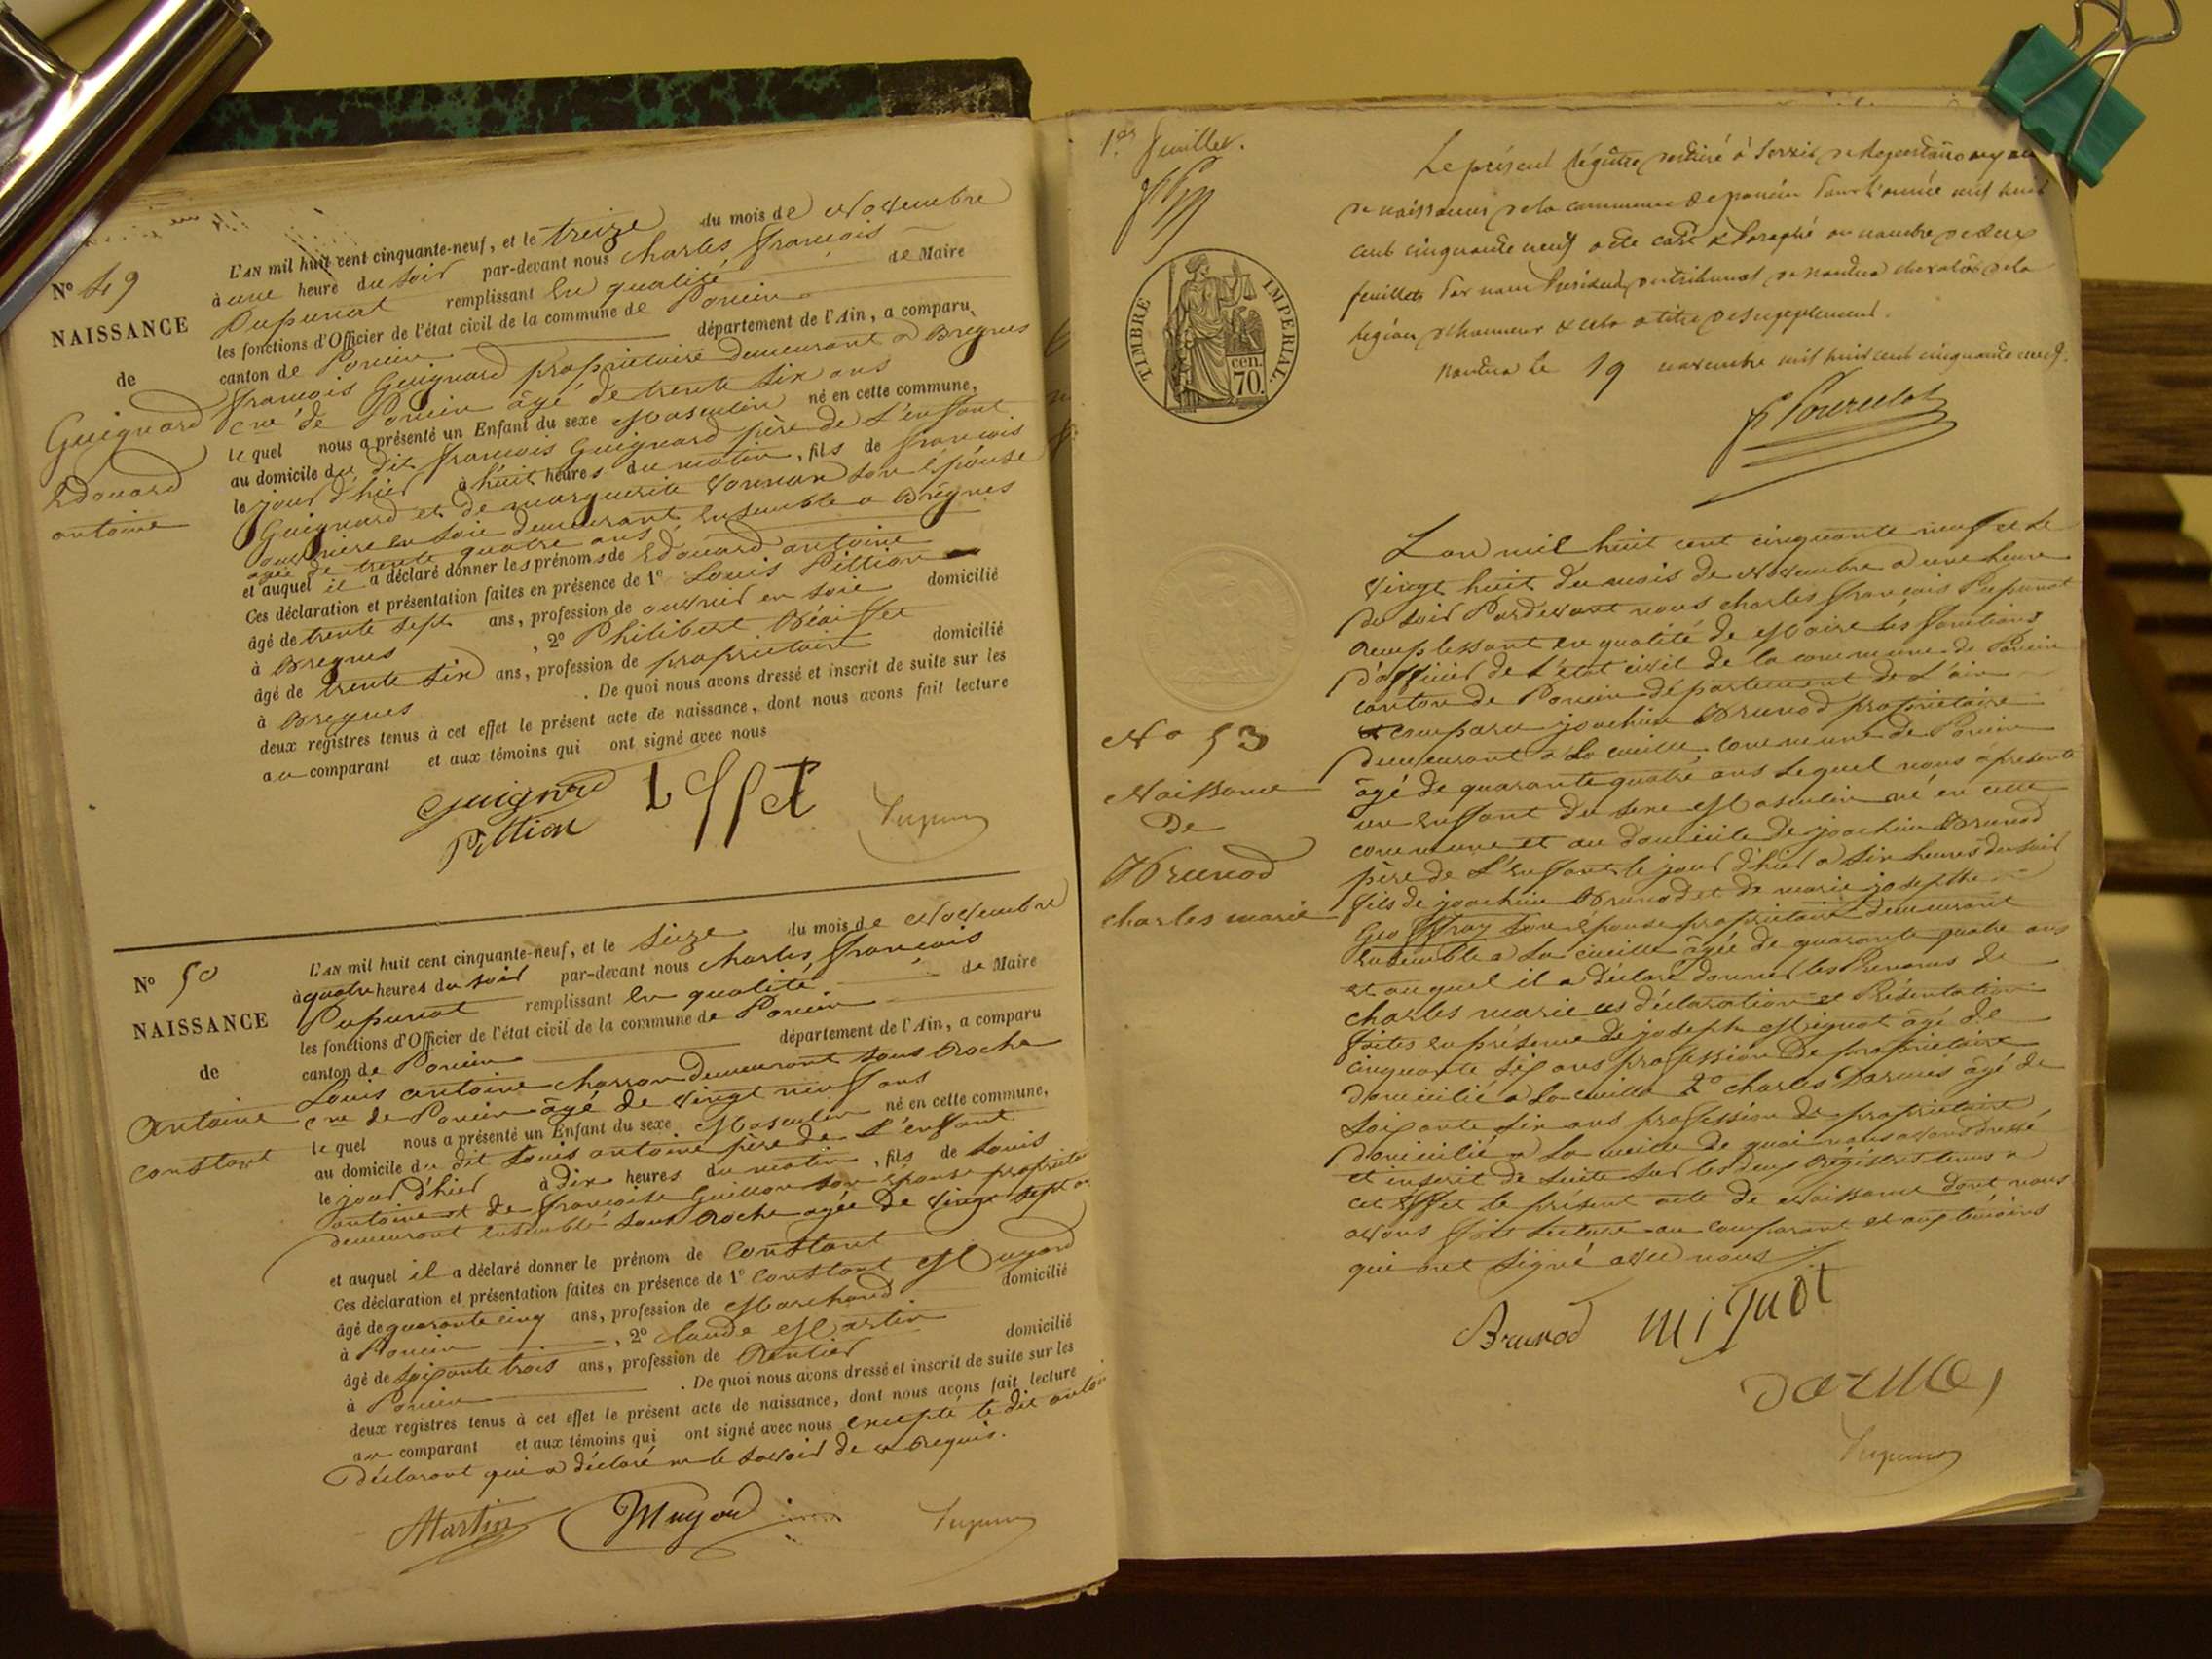 N° 49
NAISSANCE
de
Guignard
Edouard
antoine
L'AN mil huit cent cinquante-neuf, et le treize du mois de Novembre
à une heure du soir par-devant nous Charles françois
Pupunat remplissant en qualité de Maire
les fonctions d'Officier de l'état civil de la commune de Poncin
canton de Poncin département de l'Ain, a comparu
françois Guignard propriétaire demeurant a Bregnes
cne de Poncin âgé de trente six ans
lequel nous a présenté un Enfant du sexe Masculin né en cette commune,
au domicile du dit françois Guignard père de L'enfant
le jour d'hier à huit heures du matin, fils de françois
Guignard et de marguerite son Epouse
ouvrière en soie demeurant ensemble a Bregnes
agée de trente quatre ans
et auquel il a déclaré donner les prénoms de Edouard antoine
Ces déclaration et présentation faites en présence de 1° Louis Pittion
âgé de trente sept ans, profession de ouvrier en soie domicilié
à Bregnes, 2° Philibert
âgé de trente six ans, profession de propriétaire domicilié
à Bregnes. De quoi nous avons dressé et inscrit de suite sur les
deux registres tenus à cet effet le présent acte de naissance, dont nous avons fait lecture
au comparant et aux témoins qui ont signé avec nous
Guignard
Pittion
N° 50
NAISSANCE
de
Antoine
constant
L'AN mil huit cent cinquante-neuf, et le seize du mois de Novembre
à quatre heures du soir par-devant nous Charles françois
Pupunat remplissant en qualité de Maire
les fonctions d'Officier de l'état civil de la commune de Poncin
canton de Poncin département de l'Ain, a comparu
Louis antoine charron demeurant sous Roche
cne de Poncin âgé de vingt neuf ans
lequel nous a présenté un Enfant du sexe Masculin né en cette commune,
au domicile du dit Louis antoine père de L'enfant
le jour d'hier à dix heures du matin, fils de Louis
antoine et de françoise Guillon son Epouse
demeurant ensemble sous Roche agée de vingt sept
et auquel il a déclaré donner le prénom de Constant
Ces déclaration et présentation faites en présence de 1° Constant Mugard
âgé de quarante cinq ans, profession de Marchand domicilié
à Poncin, 2° Claude Martin
âgé de soixante trois ans, profession de Rentier domicilié
à Poncin. De quoi nous avons dressé et inscrit de suite sur les
deux registres tenus à cet effet le présent acte de naissance, dont nous avons fait lecture
au comparant et aux témoins qui ont signé avec nous excepté le dit
Déclarant qui a déclaré ne le savoir de ce Requis.
Martin
1er feuillet.
TIMBRE IMPERIAL.
70 cen.
Le présent Régistre
de naissances de la commune de poncin pour l'année mil huit
cent cinquante neuf a été coté & Paraphé au nombre de deux
feuillets Par nous Président du tribunal de nantua chevalier de la
légion d'honneur & cela a titre de supplément.
nantua le 19 novembre mil huit cent cinquante neuf.
N° 53
Naissance
De
Brunod
charles marie
L'an mil huit cent cinquante neuf et Le
vingt huit du mois de Novembre a une heure
du soir Pardevant nous charles françois Pupunat
Remplissant en qualité de Maire les fonctions
d'officier de L'état civil de la commune de Poncin
canton de Poncin département de L'ain
comparu joachim Brunod propriétaire
demeurant a La cueille commune de Poncin
âgé de quarante quatre ans Lequel nous a présenté
un Enfant du sexe Masculin né en cette
commune et au domicile de joachim Brunod
père de L'enfant le jour d'hier a six heures du soir
fils de joachim Brunod et de marie josephte
Geoffray son Epouse propriétaire demeurant
ensemble a La cueille âgée de quarante quatre ans
et auquel il a déclaré donner les Prenoms de
charles marie ces déclaration et Présentation
faites en présence de joseph Mignot âgé de
cinquante six ans profession de propriétaire
domicilié a La cueille 2° charles Darmes âgé de
soixante six ans profession de propriétaire
domicilié a La cueille De quoi nous avons dressé
et inscrit de suite sur les deux Régistres tenus a
cet Effet le présent acte de Naissance dont nous
avons fait Lecture au comparant et aux témoins
qui ont signé avec nous
Brunod mignot